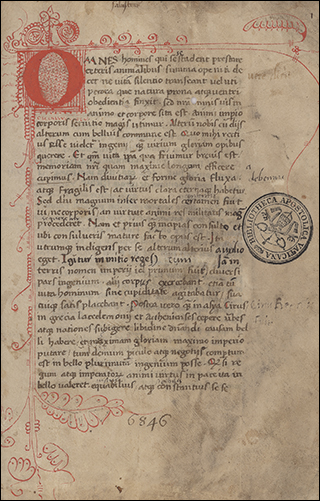 1
OMNES homines qui se student prestare
ceteris animalibus summa ope niti de
cet ne vita silentio transeant veluti
pecora que natura prona atq ventri
obedientia finxit. Sed nra omnis vis in
animo et corpore sita est. Animi impio
corporis servitio magis utimur. Alterū nobis cū diis
alterum cum belluis commune est. Quo mihi recti
us esse videt ingenii q virium gloriam opibus
querere. Et qm vita ipa qua fruimur brevis est
memoriam nri quam maxime longam efficere
cupimus. Nam divitiarū et forme gloria fluxa
atq fragilis est at virtus clara eternaq habetur
Sed diu magnum inter mortales certamen fuit
vi ne corporis an virtute animi res militaris magis
procederet. Nam et prius q incipias consulto et
ubi consulueris mature facto opus est. Ita
utrumq indigens per se alterum alterius auxilio
eget. Igitur initio reges nam in
terris nomen imperii id primum fuit diversi
pars ingenium alii corpus exercebant etiā tū
vita hominum sine cupiditate agitabatur sua
cuiq satis placebant. Postea vero q in asia Cirus
in grecia lacedemonii et Athenienses cepere urbes
atq nationes subigere libidinē dnandi causam bel
li habere et maximam gloriam maximo imperio
putare tum demum periculo atq negotiis compertum
est in bello plurimum ingenium posse. Q si re
gum atq imperatorū animi virtus in pace ita in
bello valeret equabilius atq constantius se se
BIBLIOTHECA APOSTOLICA VATICANA
6846